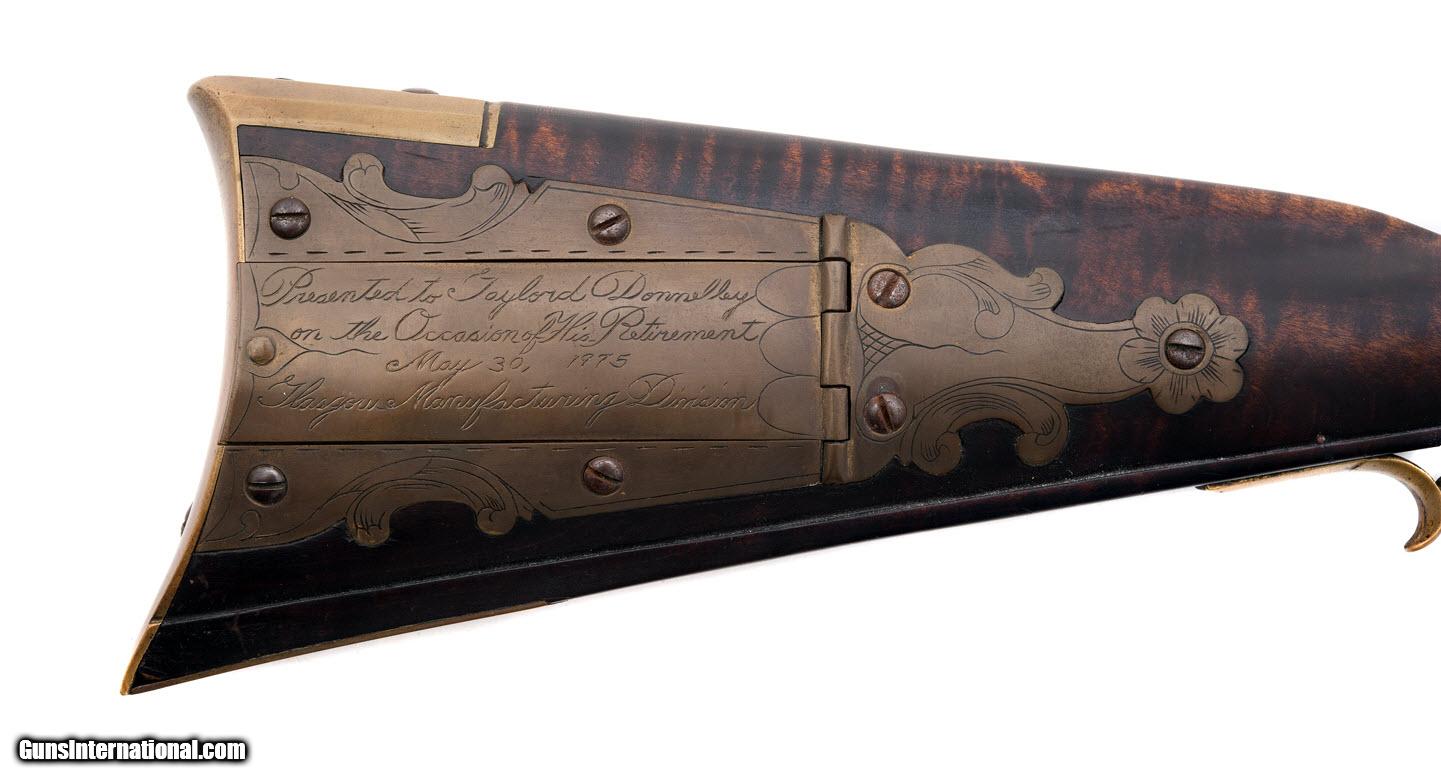 Presented to Gaylord Donnelley
on the Occasion of His Retirement
May 30, 1975
Glasgow Manufacturing Division
GunsInternational.com